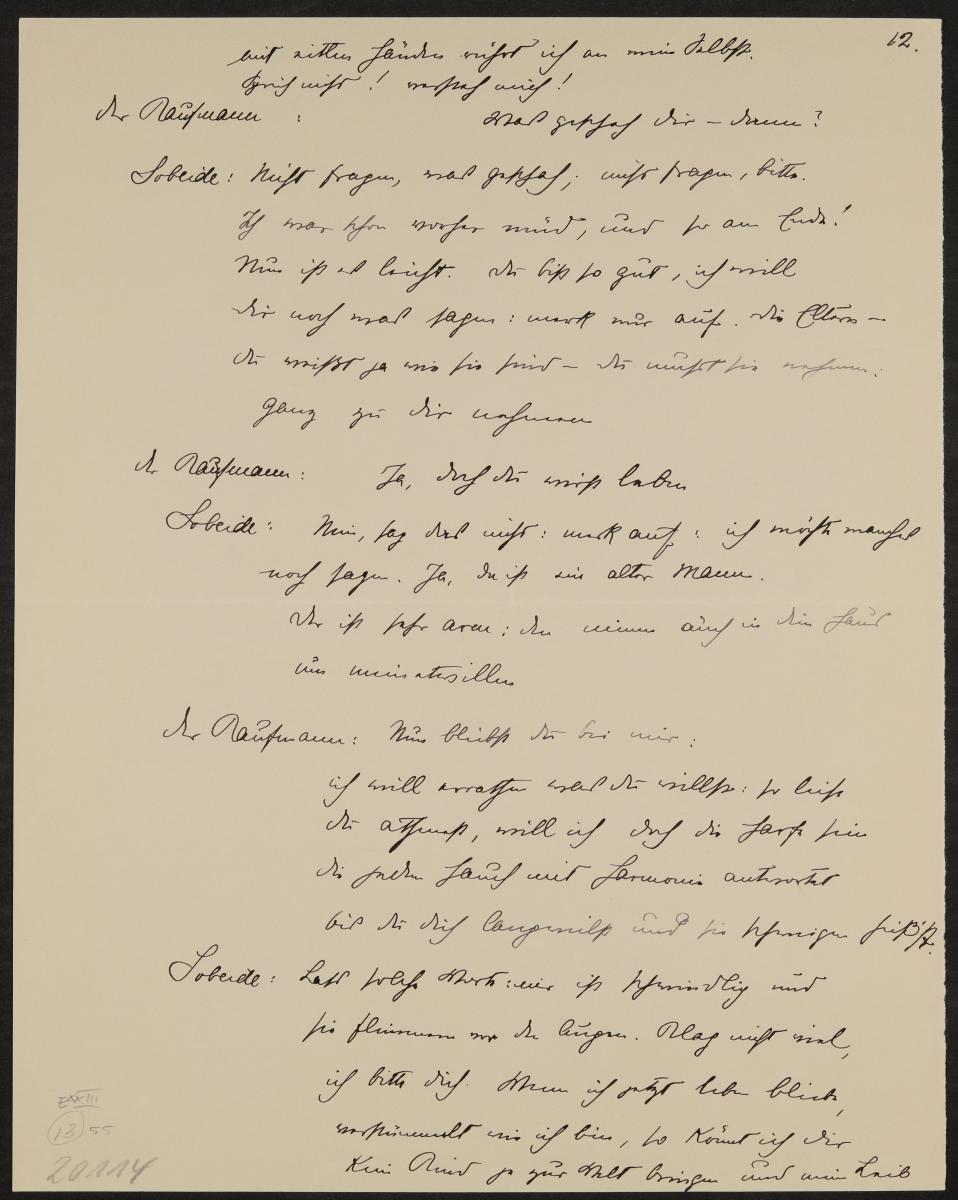 12.
mit eitlen Händen rührst ich an mein Selbst.
Sprich nicht! versteh mich!
der Kaufmann : Was geschah dir – denn?
Sobeide: Nicht fragen, was geschah; nicht fragen, bitte.
Ich war schon vorher müd, und so am Ende!
Nun ist es leicht. Du bist so gut, ich will
dir noch was sagen: merk nur auf. Die Eltern –
du weißt ja wie sie sind – du mußt sie nehmen:
ganz zu dir nehmen
der Kaufmann: Ja, doch du wirst leben
Sobeide: Nein, sag das nicht: merk auf: ich möchte manches
noch sagen. Ja, da ist ein alter Mann.
Der ist sehr arm: den nimm auch in dein Haus
um meinetwillen
der Kaufmann: Nun bleibst du bei mir:
ich will errathen was du willst: so leise
du athmest, will ich doch die Harfe sein
die jedem Hauch mit Harmonie antwortet
bis du dich langweilst und sie schweigen heiß'st.
Sobeide: Lass solche Worte: mir ist schwindlig und
sie flimmern vor den Augen. Klag nicht viel,
ich bitte dich. Wenn ich jetzt leben bliebe,
verstümmelt wie ich bin, so könnt ich dir
kein Kind je zur Welt bringen und mein Leib
EXXIII
13 55
20114